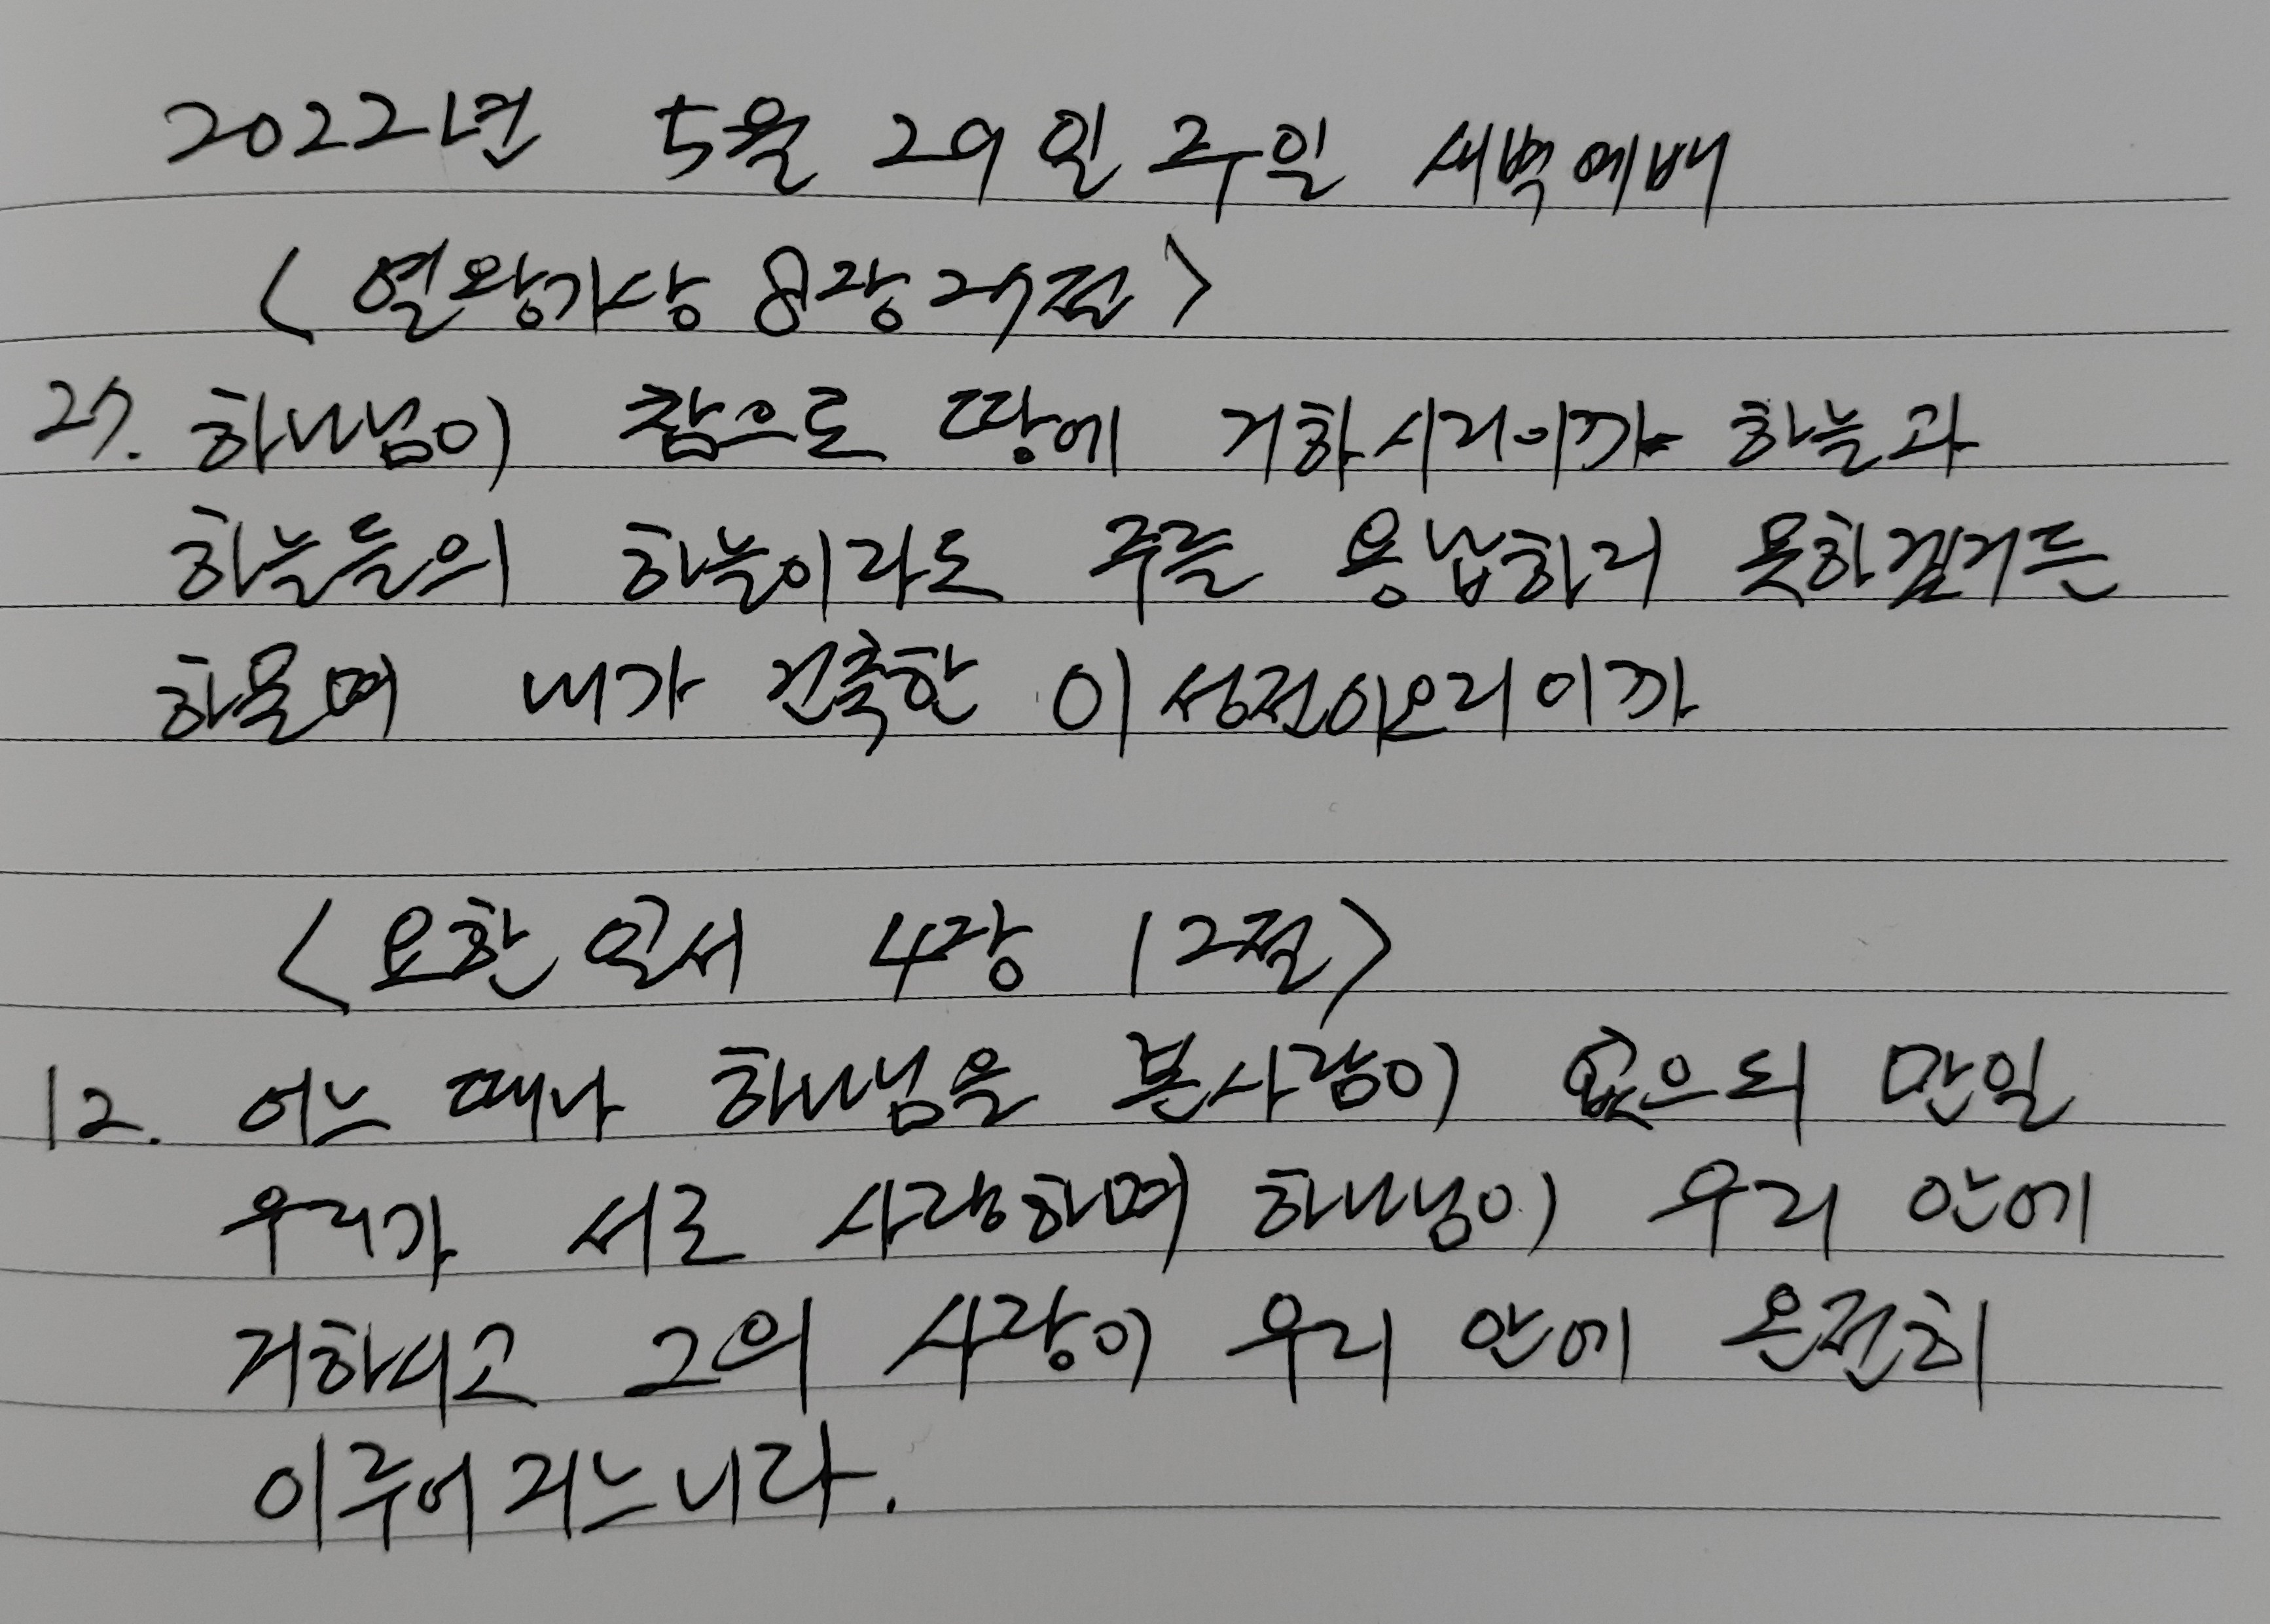 2022년 5월 29일 주일 새벽예배
< 열왕기상 8장 27절 >
27. 하나님이 참으로 땅에 거하시리이까 하늘과
하늘들의 하늘이라도 주를 용납하지 못하겠거든
하물며 내가 건축한 이 성전이오리이까
< 요한일서 4장 12절 >
12. 어느 때나 하나님을 본사람이 없으되 만일
우리가 서로 사랑하며 하나님이 우리 안에
거하시고 그의 사랑이 우리 안에 온전히
이루어 지느니라.